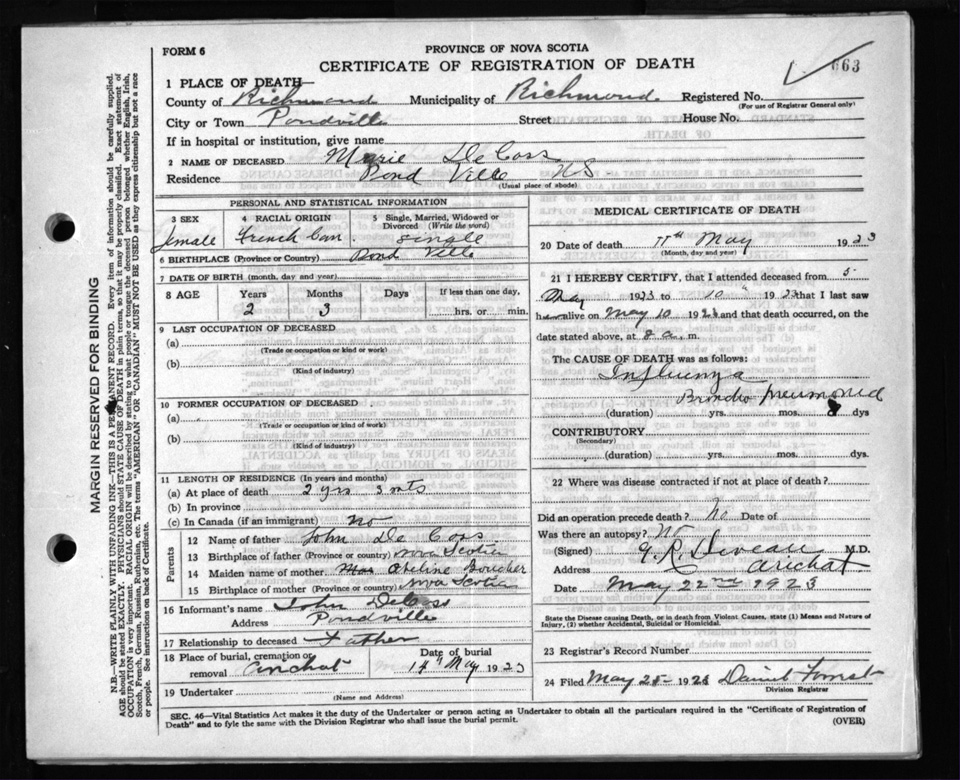 FORM 6
PROVINCE OF NOVA SCOTIA
CERTIFICATE OF REGISTRATION OF DEATH
663
1 PLACE OF DEATH—
County of Richmond Municipality of Richmond Registered No.
(For use of Registrar General only)
City or Town Pondville Street House No.
If in hospital or institution, give name
2 NAME OF DECEASED Marie DeCoss
Residence Pond Ville NS
(Usual place of abode)
PERSONAL AND STATISTICAL INFORMATION
3 SEX 4 RACIAL ORIGIN 5 Single, Married, Widowed or Divorced (Write the word)
female French Can. single
6 BIRTHPLACE (Province or Country) Pond Ville
7 DATE OF BIRTH (month, day and year)
8 AGE Years Months Days If less than one day,
2 3 hrs. or min.
9 LAST OCCUPATION OF DECEASED
(a)
(Trade or occupation or kind of work)
(b)
(Kind of industry)
10 FORMER OCCUPATION OF DECEASED
(a)
(Trade or occupation or kind of work)
(b)
(Kind of industry)
11 LENGTH OF RESIDENCE (In years and months)
(a) At place of death 2 yrs 3 mts
(b) In province
(c) In Canada (if an immigrant) no
Parents
12 Name of father John De Coss
13 Birthplace of father (Province or country) Nova Scotia
14 Maiden name of mother Boucher
15 Birthplace of mother (Province or country) Nova Scotia
16 Informant's name John DeCoss
Address Pondville
17 Relationship to deceased Father
18 Place of burial, cremation or removal Arichat Date of burial 14" May 1923
19 Undertaker
(Name and Address)
MEDICAL CERTIFICATE OF DEATH
20 Date of death 11th May 1923
(Month, day and year)
21 I HEREBY CERTIFY, that I attended deceased from 5"
May 1923 to 10" 1923 that I last saw
h alive on May 10 1923 and that death occurred, on
date stated above, at 8 a. m.
The CAUSE OF DEATH was as follows:
Influenza
Broncho pneumonia
(duration) yrs. mos. dys
CONTRIBUTORY
(Secondary)
(duration) yrs. mos. dys.
22 Where was disease contracted if not at place of death?
Did an operation precede death? No Date of
Was there an autopsy? No
(Signed) R. Deveau M.D.
Address Arichat
Date May 22nd 1923
State the Disease causing Death, or in death from Violent Causes, state (1) Means and Nature of Injury, (2) whether Accidental, Suicidal or Homicidal.
23 Registrar's Record Number
24 Filed May 25 1923 Daniel
Division Registrar
SEC. 46—Vital Statistics Act makes it the duty of the Undertaker or person acting as Undertaker to obtain all the particulars required in the "Certificate of Registration of
Death" and to fyle the same with the Division Registrar who shall issue the burial permit.
(OVER)
MARGIN RESERVED FOR BINDING
N.B.—WRITE PLAINLY WITH UNFADING INK—THIS IS A PERMANENT RECORD. Every item of information should be carefully supplied.
AGE should be stated EXACTLY. PHYSICIANS should STATE CAUSE OF DEATH in plain terms, so that it may be properly classified. Exact statement of
OCCUPATION is very important. RACIAL ORIGIN will be described by stating to what people or tongue the deceased person belonged whether English, Irish,
Scotch, French, German, Russian, Ruthenian, etc. The terms "AMERICAN" OR "CANADIAN" MUST NOT BE USED as they express citizenship but not a race
or people. See instructions on back of Certificate.